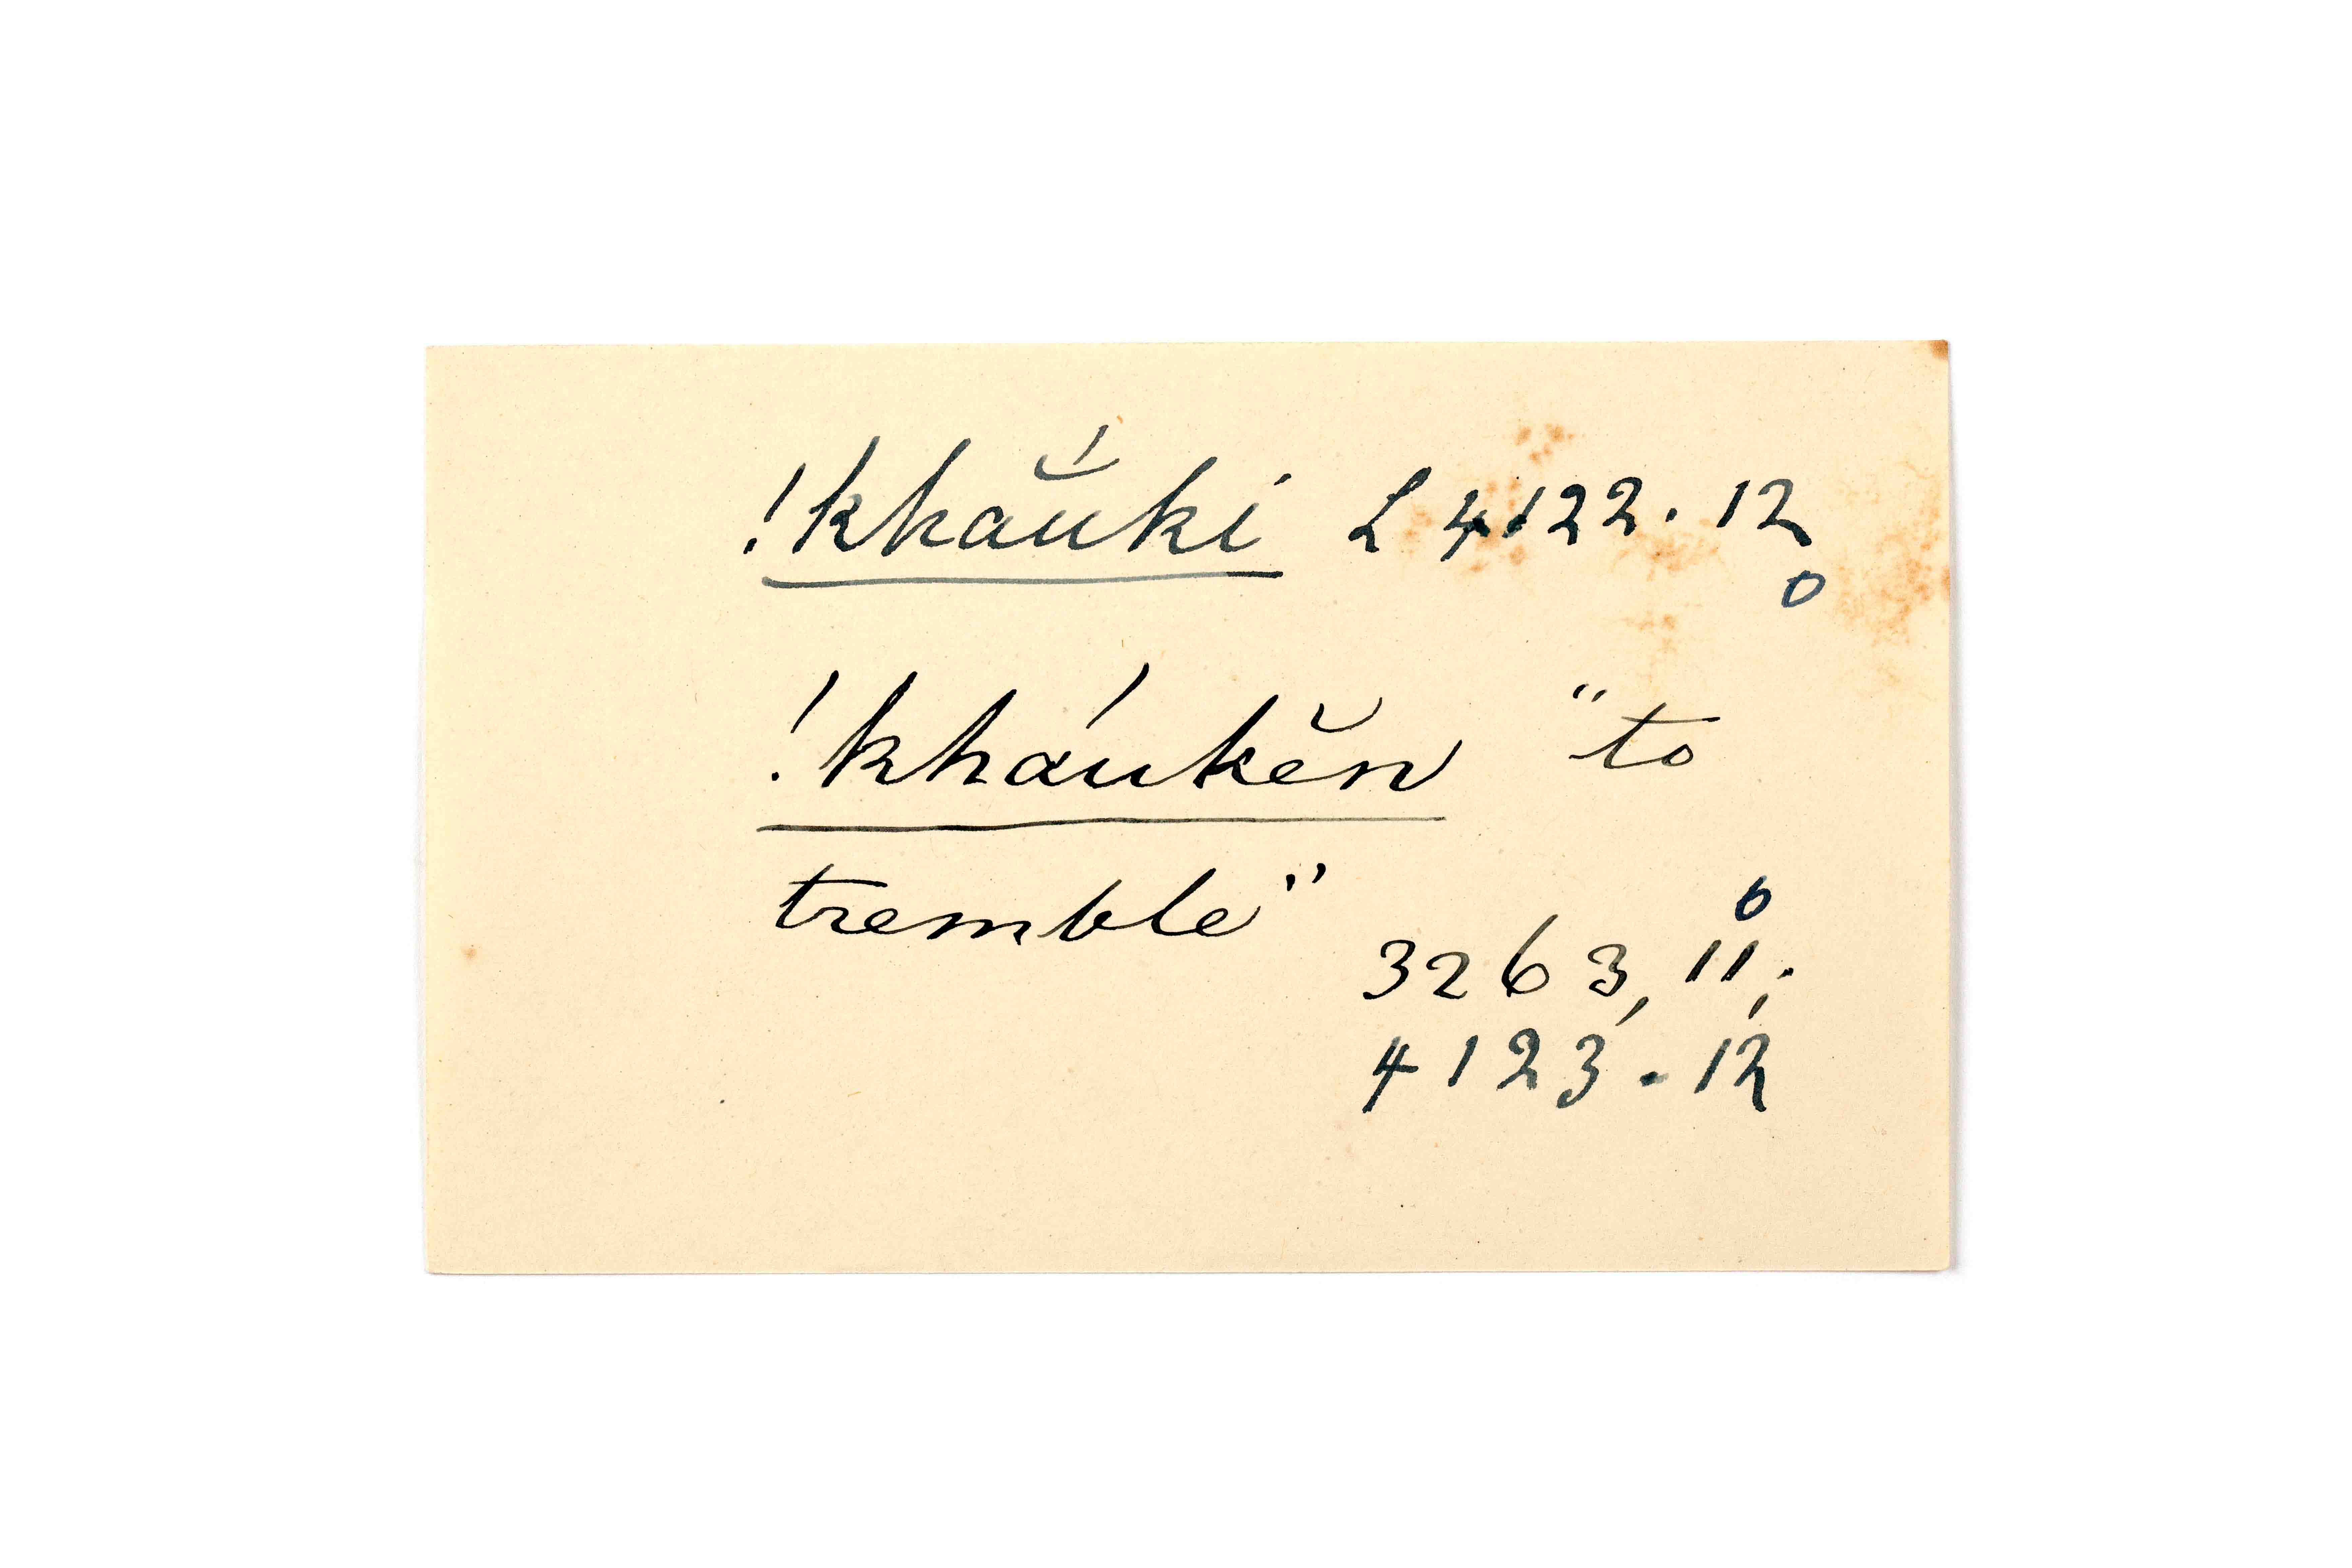 !khaŭ̯́ki L 4122. 12
o
!kháukĕn "to
tremble"
o
3263, 11.
4123. 12